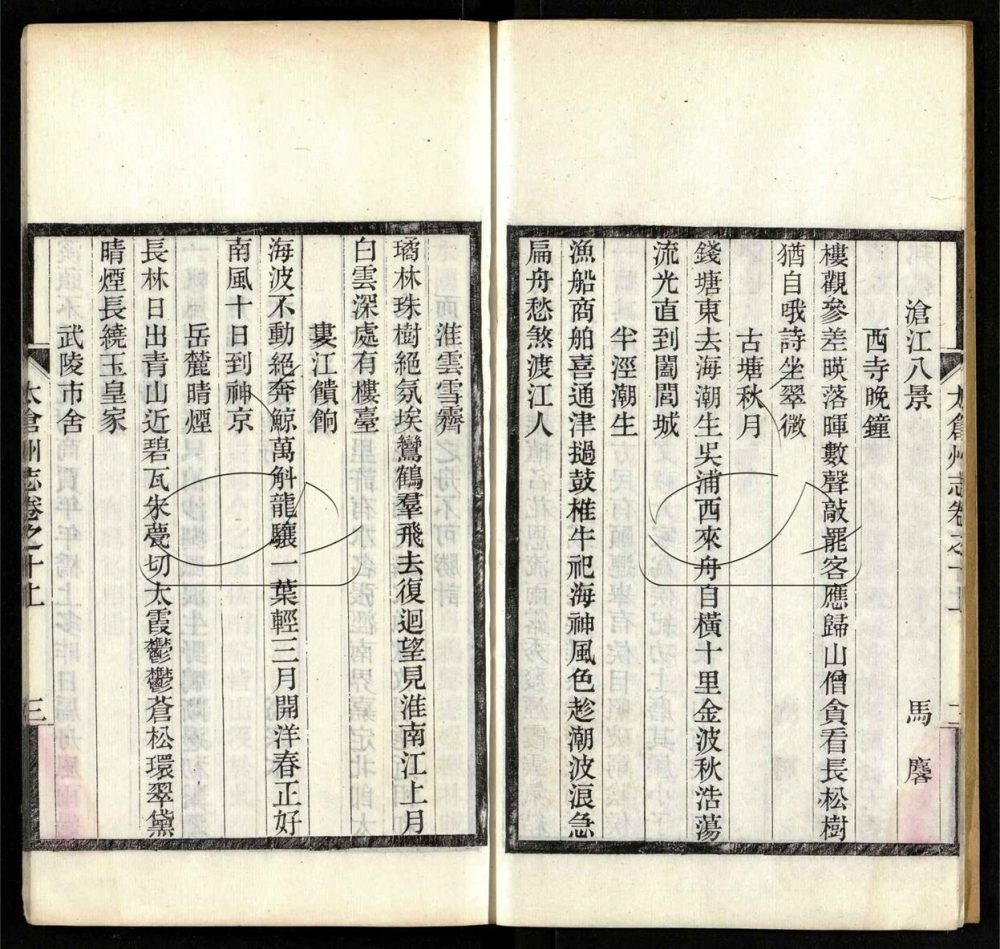 滄江八景　馬麐
西寺晚鐘
樓觀參差暎落暉數聲敲罷客應歸山僧貪看長松樹
猶自哦詩坐翠微
古塘秋月
錢塘東去海潮生吳浦西來舟自橫十里金波秋浩蕩
流光直到闔閭城
半涇潮生
漁船商舶喜通津撾鼓椎牛祀海神風色趁潮波浪急
扁舟愁煞渡江人
淮雲雪霽
璚林珠樹絕氛埃鸞鶴羣飛去復迴望見淮南江上月
白雲深處有樓臺
婁江饋餉
海波不動絕奔鯨萬斛龍驤一葉輕三月開洋春正好
南風十日到神京
岳麓晴煙
長林日出青山近碧瓦朱甍切太霞鬱鬱蒼松環翠黛
晴煙長繞玉皇家
武陵市舍
太倉州志卷之十上
三